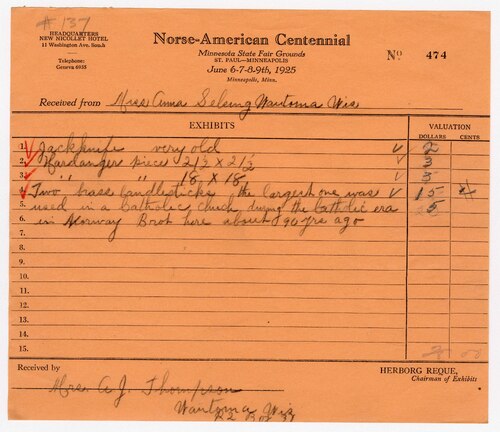 # 137
HEADQUARTERS
NEW NICOLLET HOTEL
11 Washington Ave. South
Telephone:
Geneva 6035
Norse-American Centennial
Minnesota State Fair Grounds
ST. PAUL—MINNEAPOLIS
June 6-7-8-9th, 1925
Minneapolis, Minn.
No. 474
Received from Mrs Anna Seleing Wautoma Wis
EXHIBITS
VALUATION
DOLLARS CENTS
1. Jackknife very old 2
2. Hardanger piece 21½ X 21½ 3
3. " " 18 X 18 3
4. Two brass candlesticks - the largest one was 15
5. used in a Catholic Church during the Catholic era 5
6. in Norway Brot here about 190 yrs ago
7.
8.
9.
10.
11.
12.
13.
14.
15.
Received by
Mrs. A. J. Thompson
Wautoma Wis
R2 Box 37
HERBORG REQUE,
Chairman of Exhibits